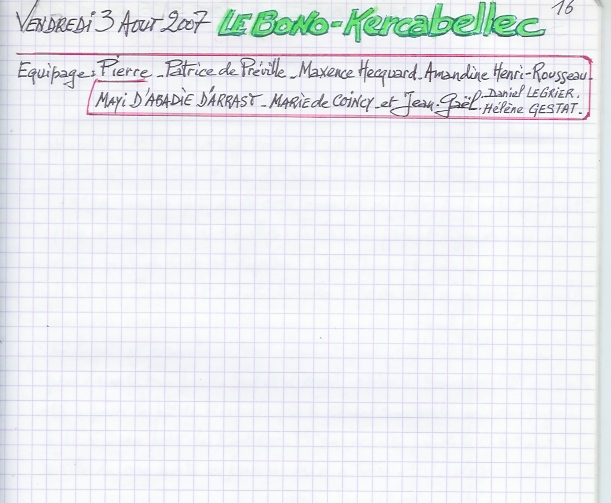 VENDREDI 3 AOUT 2007 LE BONO-Kercabellec 16
Equipage: Pierre - Patrice de Préville - Maxence Hecquard - Amandine Henri-Rousseau -
MAYi D'ABADIE D'ARRAST - MARiE de COiNCY - et Jean-Gaël. Daniel LEGRIER.
Hélène GESTAT. -